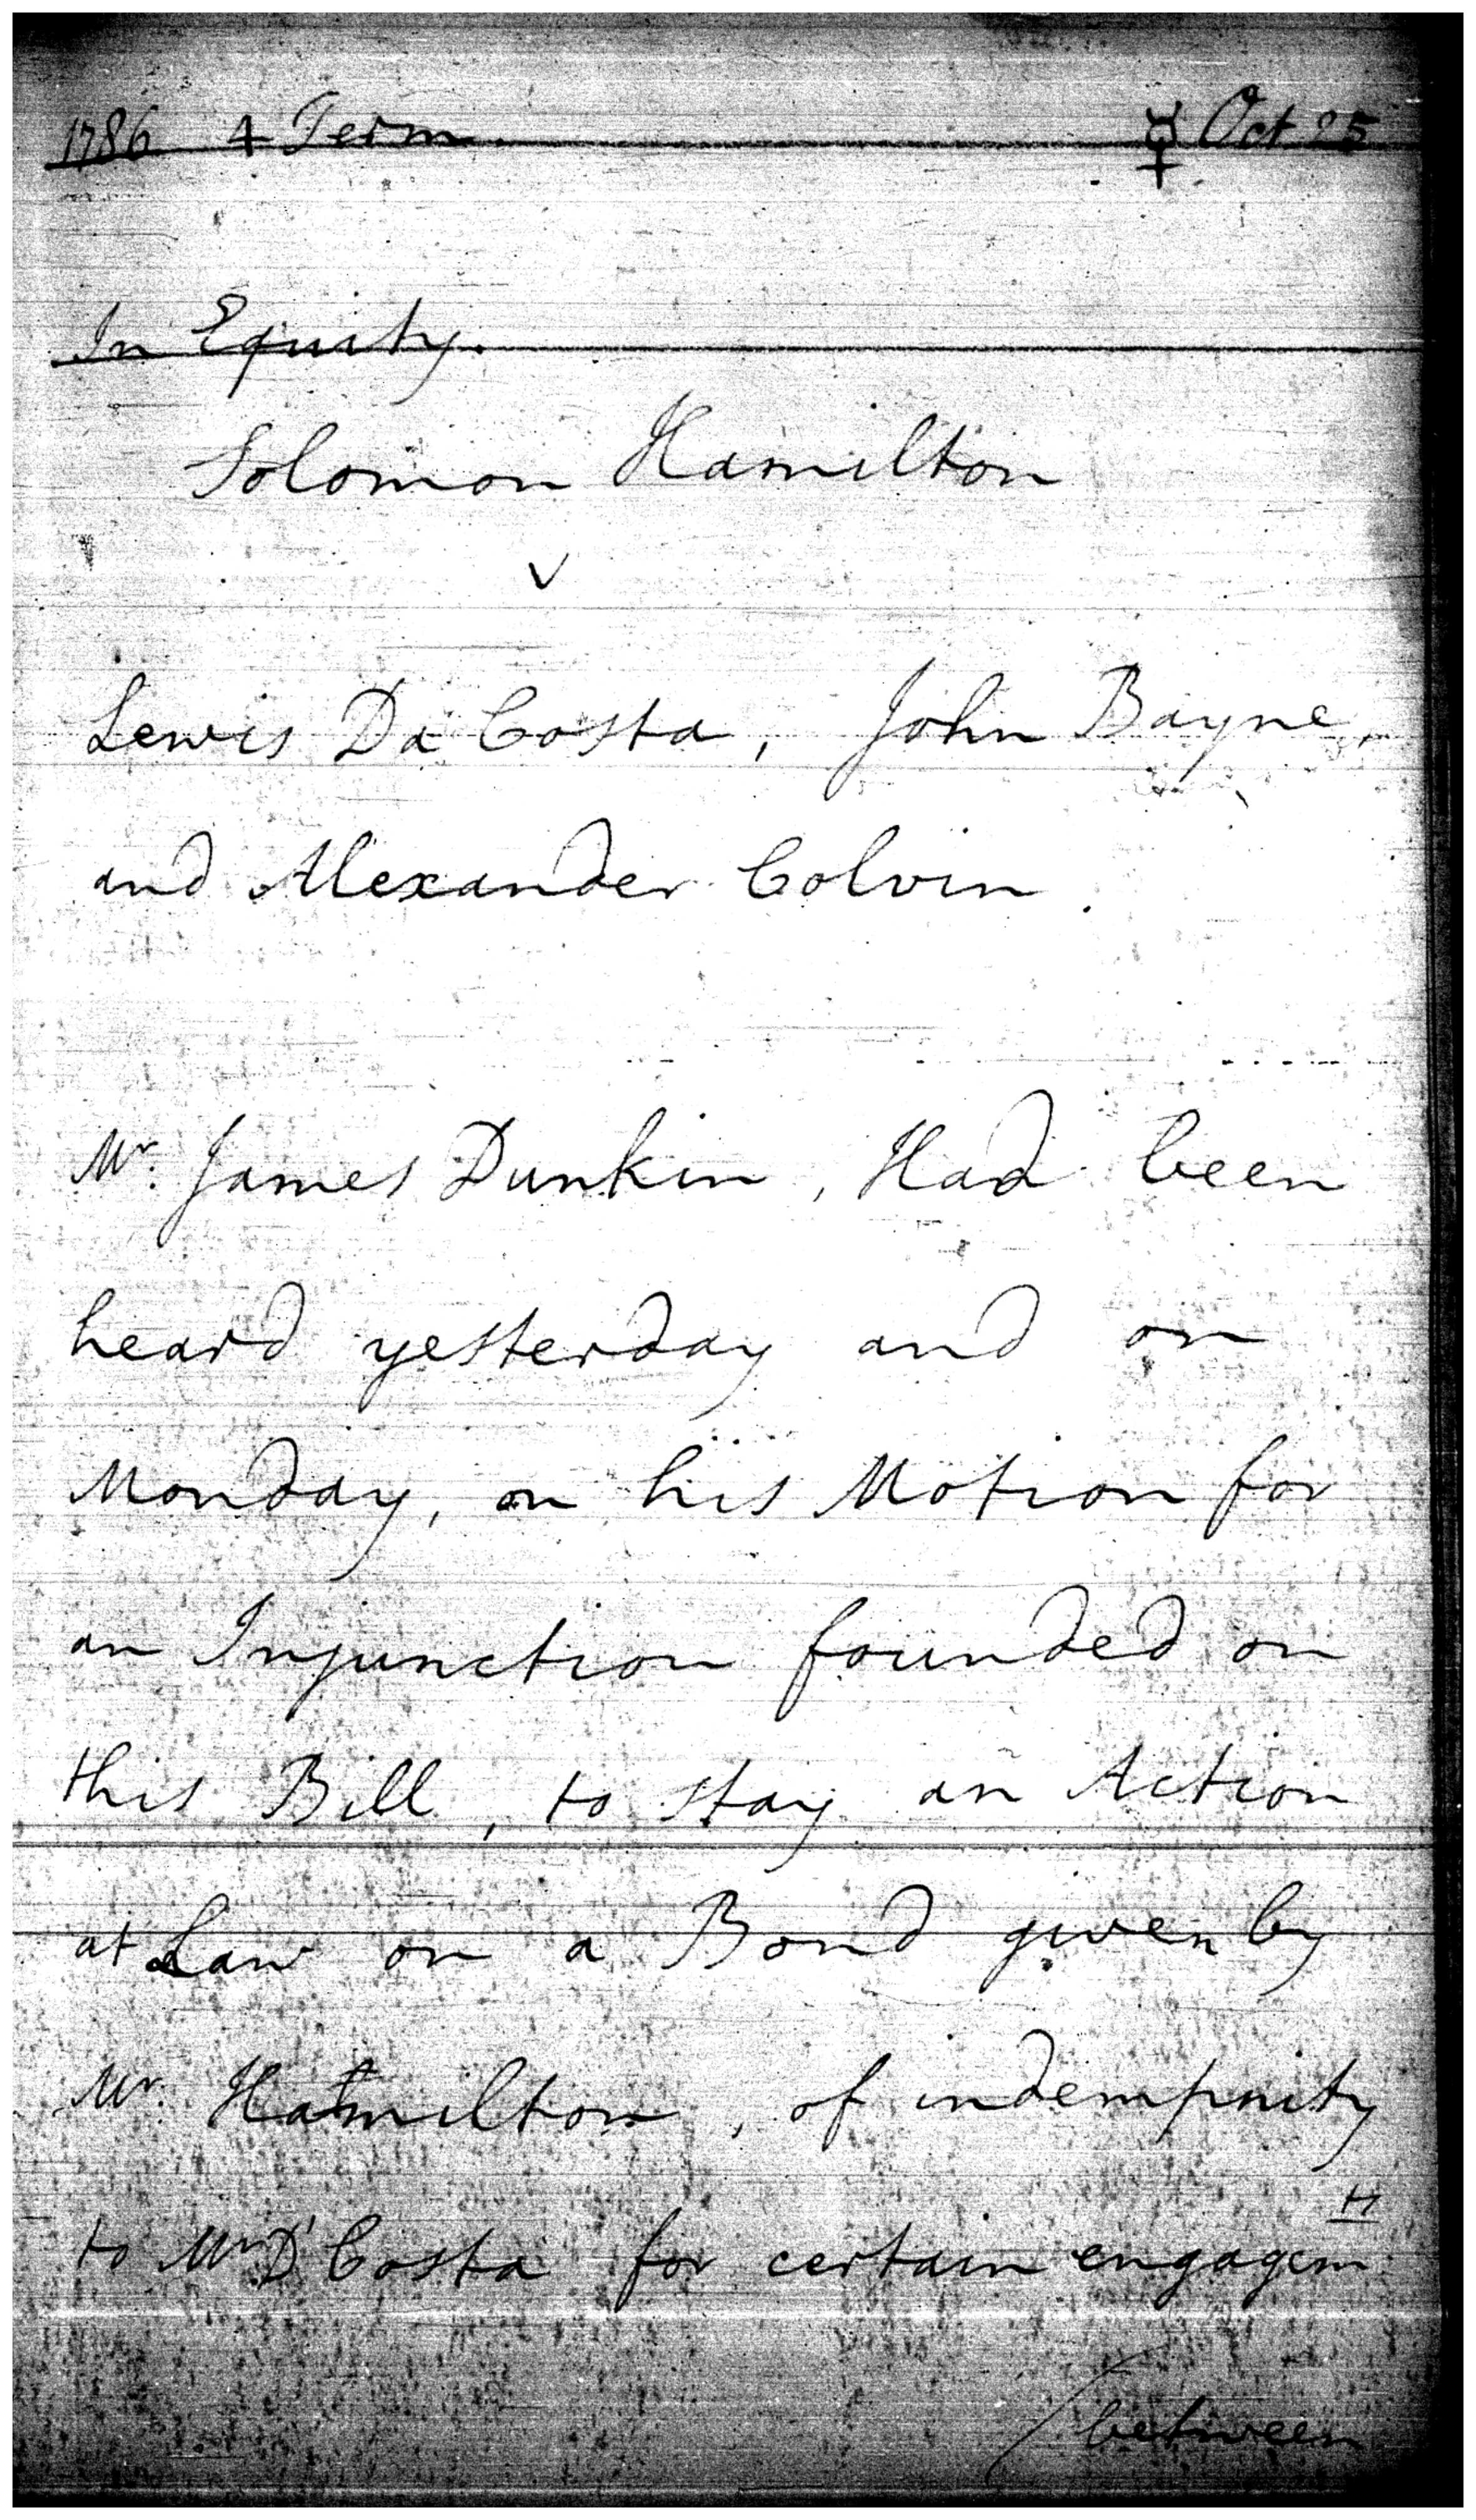 1786 4 Term. ☿ Oct 25
In Equity.
Solomon Hamilton
v
Lewis Da Costa, John Bayne,
and Alexander Colvin.
Mr. James Dunkin, Had been
heard yesterday and on
Monday, on his Motion for
an Injunction founded on
this Bill, to stay an Action
at Law on a Bond given by
Mr. Hamilton, of indempnity
to Mr D'Costa for certain engagem
between